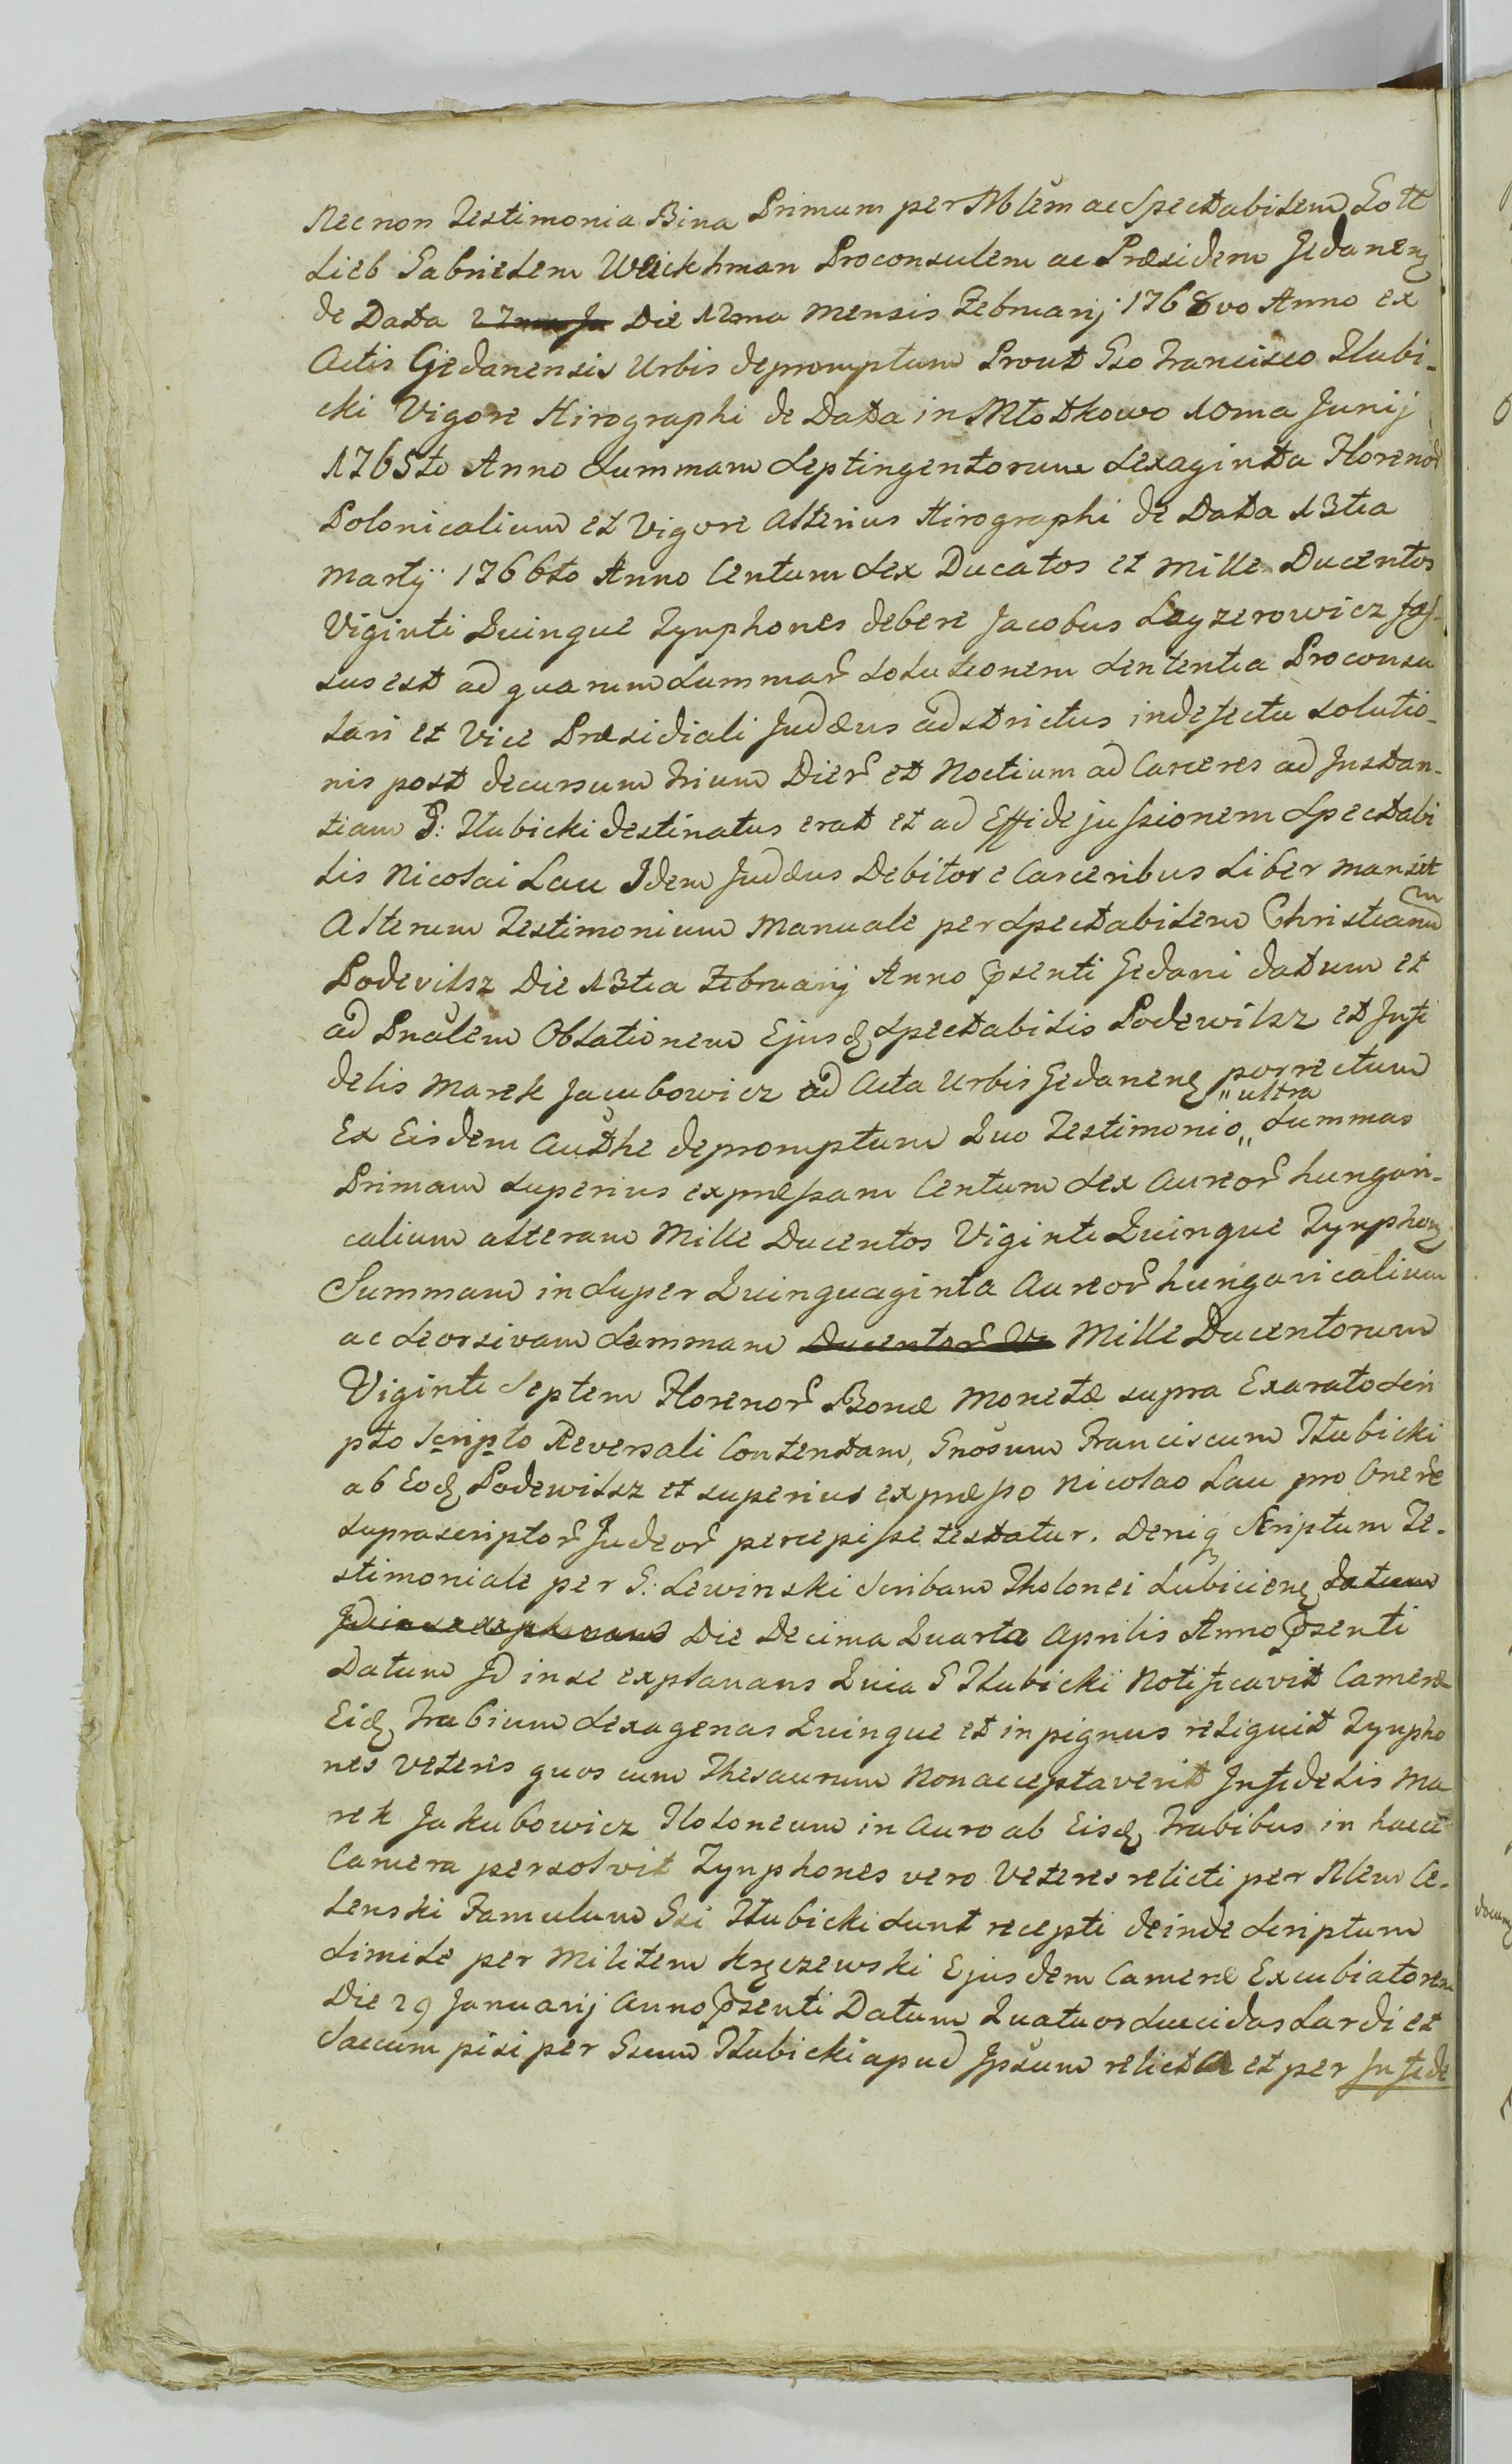 Nec non Testimonia Bina Primum per Nblem ac Spectabilem Gott
lieb Gabrielem Weickhman Proconsulem ac Præsidem Gedanen
de Data Die 12ma Mensis Februarij 1768vo Anno ex
Actis Gedanensis Urbis depromptum Prout Gso Francisco Hubi-
cki Vigore Hirographi de Data in Młodkowo 10ma Junij
1765to Anno Summam Septingentorum Sexaginta Floren
Polonicalium et Vigore Alterius Hirographi de Data 13tia
Martij 1766to Anno Centum Sex Ducatos et Mille Ducentos
Viginti Quinque Tynphones debere Jacobus Leyzerowicz fas-
sus est ad quarum Summar Solutionem Sententia Proconsu
lari et Vice Præsidiali Judæus adstrictus in defectu Solutio-
nis post decursum trium Dier et Noctium ad Carceres ad Instan-
tiam G: Hubicki destinatus erat et ad Effidejussionem Spectabi
lis Nicolai Lau Idem Judæus Debitor e Carceribus Liber mansit
Alterum Testimonium Manuale per Spectabilem Christianum
Podevilsz Die 13tia Februarij Anno psenti Gedani datum et
ad Pnalem Oblationem Ejusd Spectabilis Podewilsz et Infi
delis Marek Jacubowicz ad Acta Urbis Gedanen porrectum
Ex Eisdem Authe depromptum Quo Testimonio " ultra " Summas
Primam Superius expressam Centum Sex Aureor hungari-
calium alteram Mille Ducentos Viginti Quinque Tynphon
Summam in Super Quinquaginta Aureor hungaricalium
ac Seorsivam Summam Ducentor Vi Mille Ducentorum
Viginti Septem Florenor Bonæ Monetæ supra Exarato Scri
pto Scripto Reversali Contentam, Gnosum Franciscum Hubicki
ab Eod Podewilsz et superius expresso Nicolao Lau pro Onere
suprascriptor Judeor percepisse testatur. Deniq Scriptum Te-
stimoniale per G: Lewinski Scribam Tholonei Lubicien datum
Die Decima Quarta Aprilis Anno psenti
Datum Id in se explanans Quia G Hubicki Notificavit Cameræ
Eid Trabium Sexagenas Quinque et in pignus reliquit Tynpho
nes veteris quos cum Thesaurum Non acceptaverit Infidelis Ma
rek Jakubowicz Tholoneum in Auro ab Eisd Trabibus in hacce
Camera persolvit Tynphones vero Veteres relicti per Nlem Ce-
lenski Famulum Gsi Hubicki Sunt recepti deinde Scriptum
Simile per Militem Kręczewski Ejusdem Cameræ Excubiatorem
Die 29 Januarij Anno psenti Datum Quatuor Succidas Lardi et
Saccum pisi per Gsum Hubicki apud Ipsum relicta et per Infide